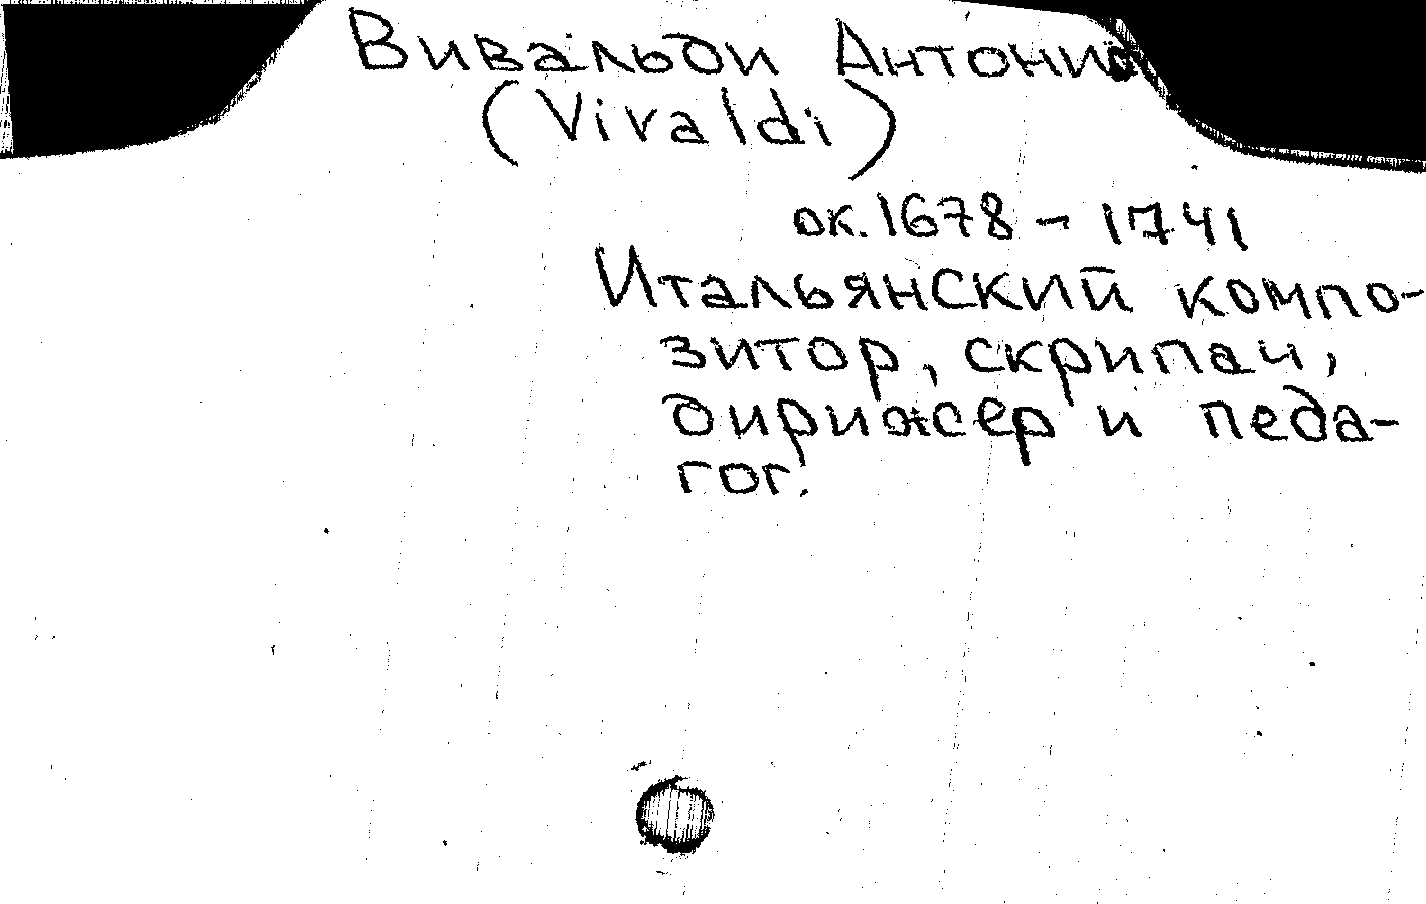 Вивальди Антонио
(Vivaldi)
ок. 1678 - 1741
Итальянский компо-
зитор, скрипач,
дирижер и педа-
гог.